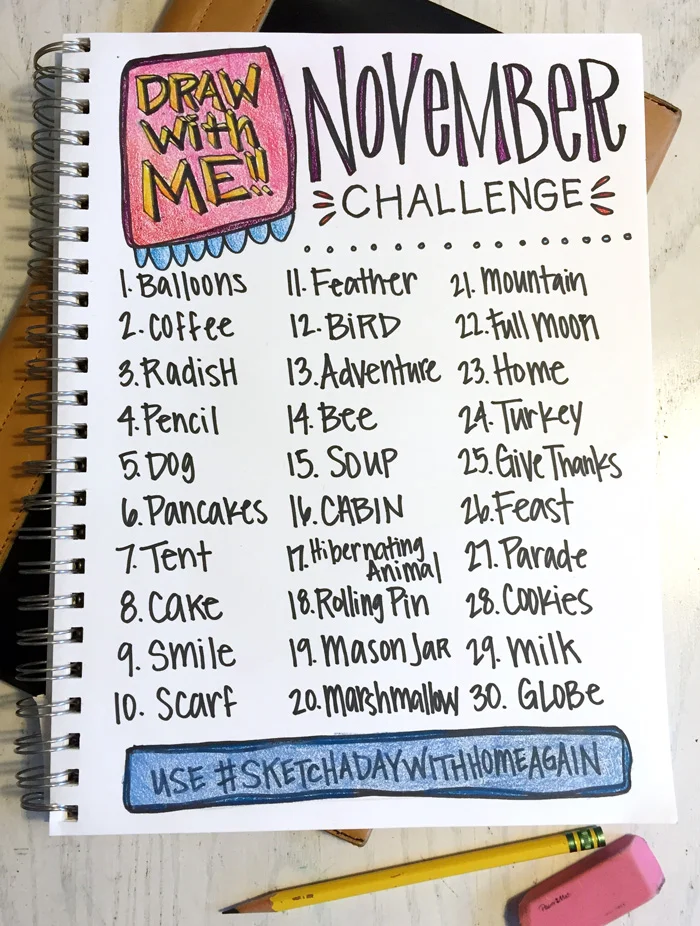 DRAW
with
ME!!
NOVEMBER
CHALLENGE
1. Balloons
2. Coffee
3. RadisH
4. Pencil
5. DOg
6. Pancakes
7. Tent
8. Cake
9. Smile
10. Scarf
11. Feather
12. BiRD
13. Adventure
14. Bee
15. SOUP
16. CABIN
17. Hibernating
Animal
18. Rolling Pin
19. Mason JaR
20. Marshmallow
21. Mountain
22. Full Moon
23. Home
24. Turkey
25. Give Thanks
26. Feast
27. Parade
28. Cookies
29. Milk
30. GLOBe
USE #SKETCHADAYWITHHOMEAGAIN
Paper Mate